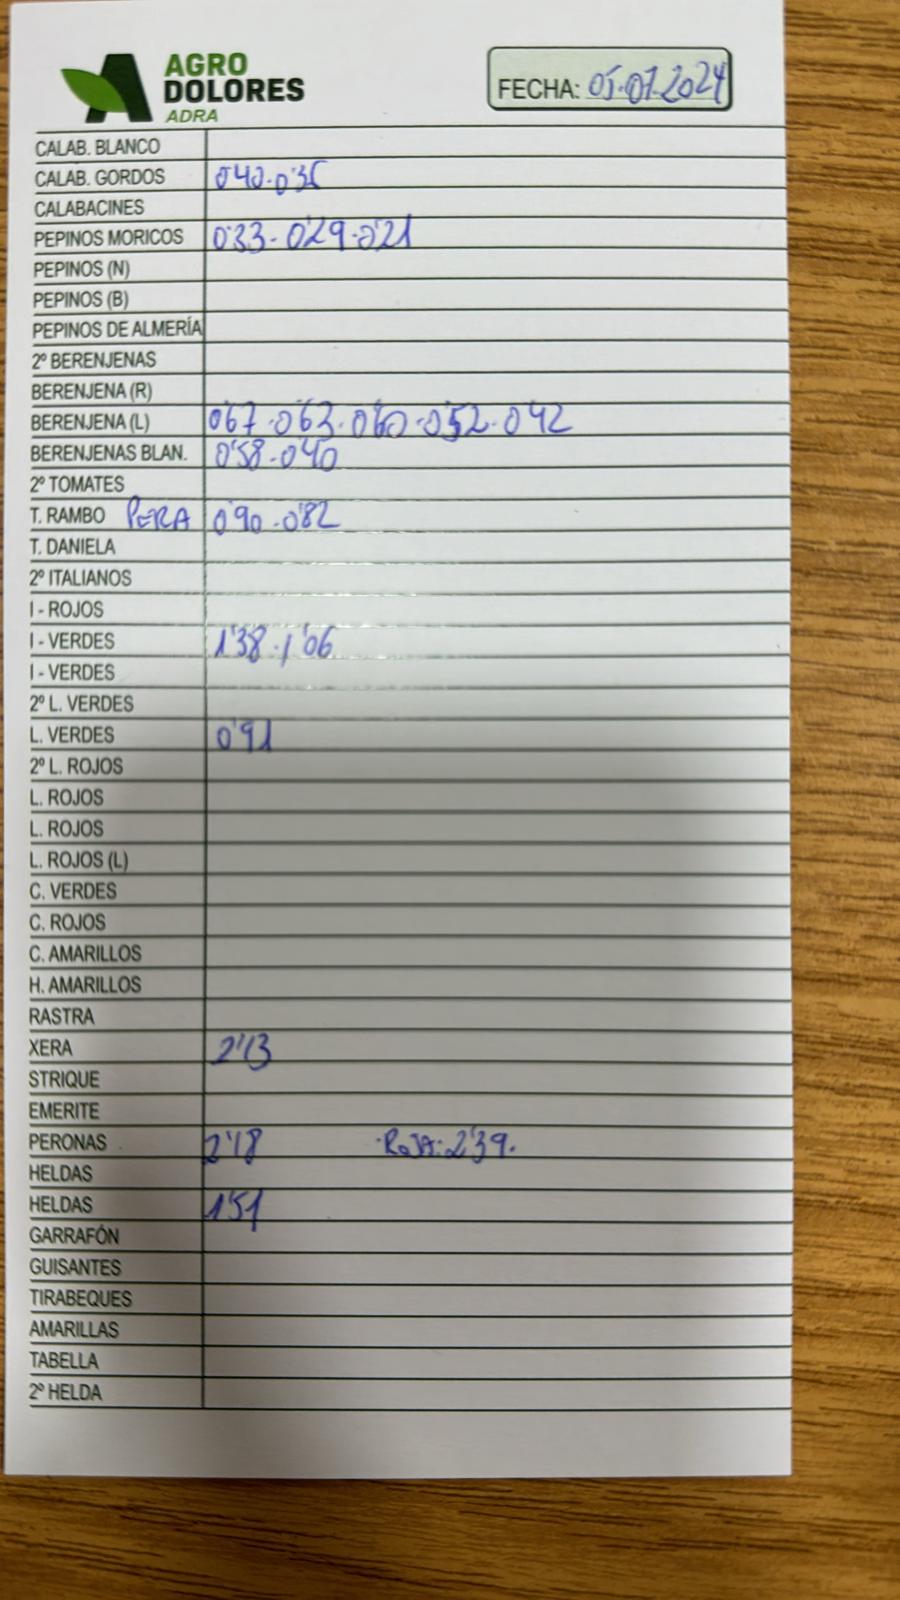 AGRO
DOLORES
ADRA
FECHA: 05.07.2024
CALAB. BLANCO
CALAB. GORDOS 0'40.0'35
CALABACINES
PEPINOS MORICOS 0'33-0'29-0'21
PEPINOS (N)
PEPINOS (B)
PEPINOS DE ALMERÍA
2º BERENJENAS
BERENJENA (R)
BERENJENA (L) 0'67-0'63.0'60-0'52.0'42
BERENJENAS BLAN. 0'58-0'40
2º TOMATES
T. RAMBO PERA 0'90-0'82
T. DANIELA
2º ITALIANOS
I - ROJOS
I - VERDES 1'38.1'06
I - VERDES
2º L. VERDES
L. VERDES 0'91
2º L. ROJOS
L. ROJOS
L. ROJOS
L. ROJOS (L)
C. VERDES
C. ROJOS
C. AMARILLOS
H. AMARILLOS
RASTRA
XERA 2'13
STRIQUE
EMERITE
PERONAS 2'18 ROJA: 2'39.
HELDAS
HELDAS 1'51
GARRAFÓN
GUISANTES
TIRABEQUES
AMARILLAS
TABELLA
2º HELDA